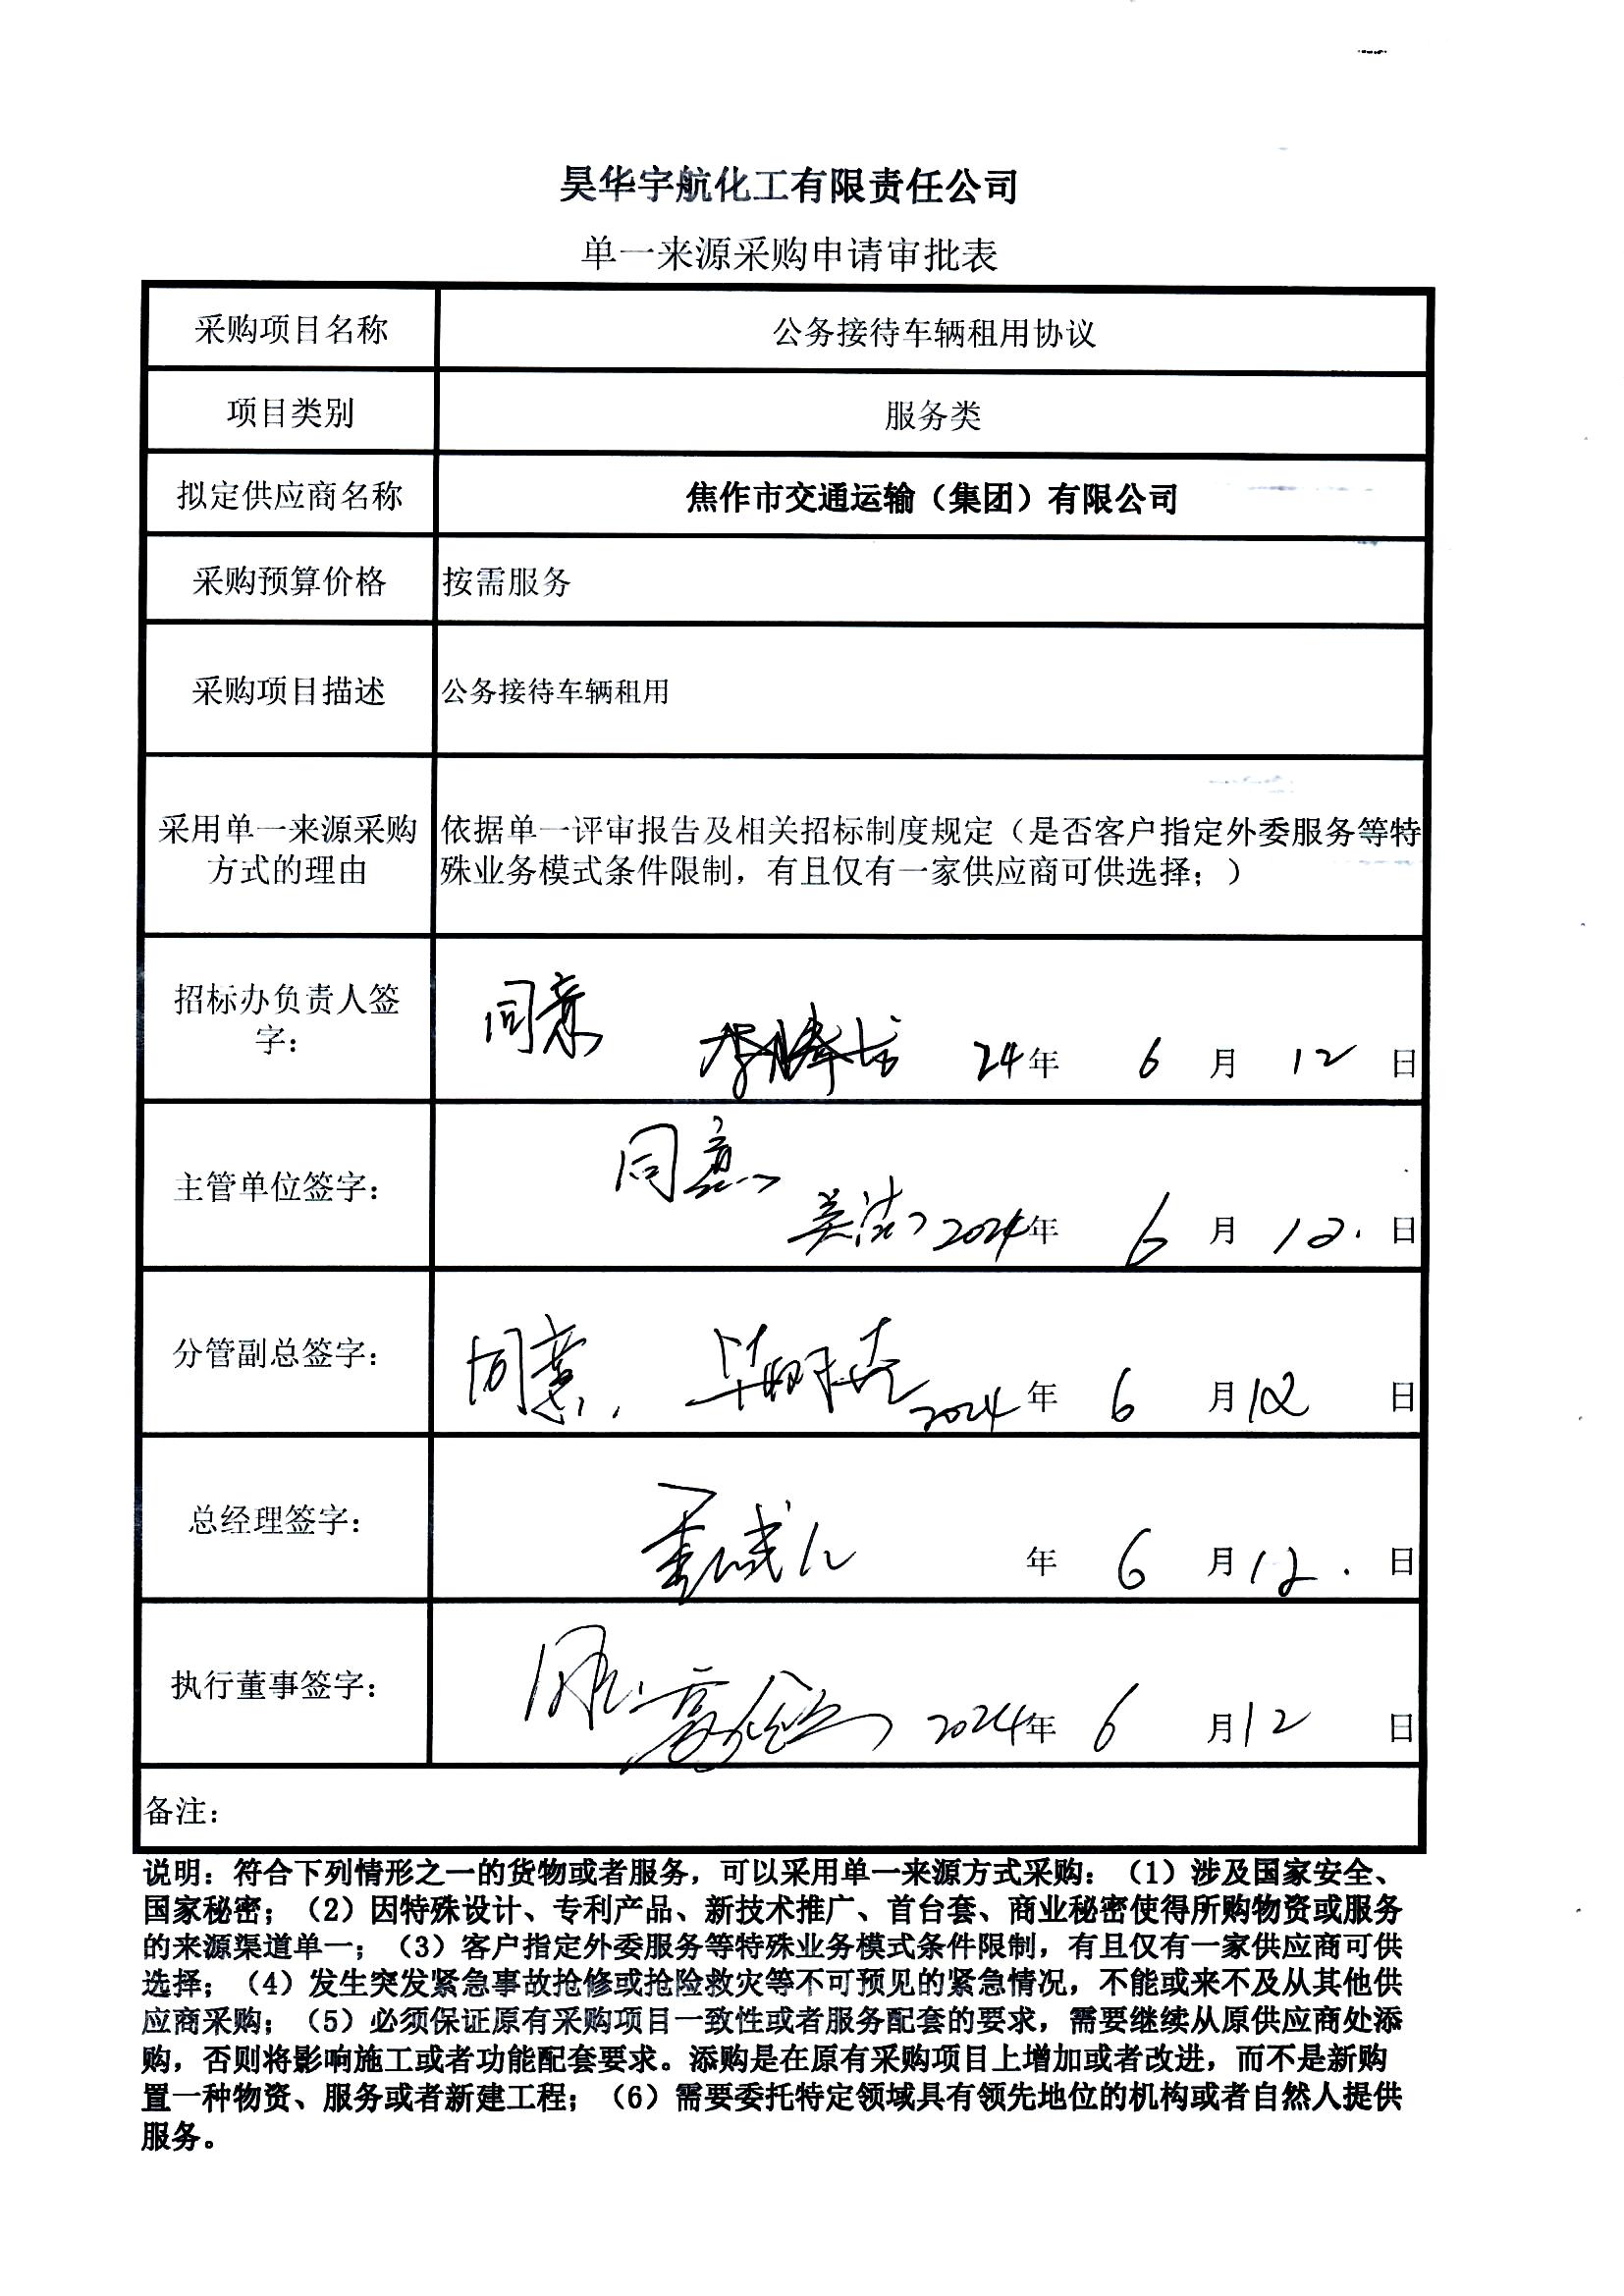 昊华宇航化工有限责任公司
单一来源采购申请审批表
采购项目名称
公务接待车辆租用协议
项目类别
服务类
拟定供应商名称
焦作市交通运输（集团）有限公司
采购预算价格
按需服务
采购项目描述
公务接待车辆租用
采用单一来源采购
方式的理由
依据单一评审报告及相关招标制度规定（是否客户指定外委服务等特
殊业务模式条件限制，有且仅有一家供应商可供选择；）
招标办负责人签
字：
同意
24年 6 月 12 日
主管单位签字：
同意
2024年 6 月 12. 日
分管副总签字：
同意
2024 年 6 月12 日
总经理签字：
年 6 月12. 日
执行董事签字：
2024年 6 月12 日
备注：
说明：符合下列情形之一的货物或者服务，可以采用单一来源方式采购：（1）涉及国家安全、
国家秘密；（2）因特殊设计、专利产品、新技术推广、首台套、商业秘密使得所购物资或服务
的来源渠道单一；（3）客户指定外委服务等特殊业务模式条件限制，有且仅有一家供应商可供
选择；（4）发生突发紧急事故抢修或抢险救灾等不可预见的紧急情况，不能或来不及从其他供
应商采购；（5）必须保证原有采购项目一致性或者服务配套的要求，需要继续从原供应商处添
购，否则将影响施工或者功能配套要求。添购是在原有采购项目上增加或者改进，而不是新购
置一种物资、服务或者新建工程；（6）需要委托特定领域具有领先地位的机构或者自然人提供
服务。